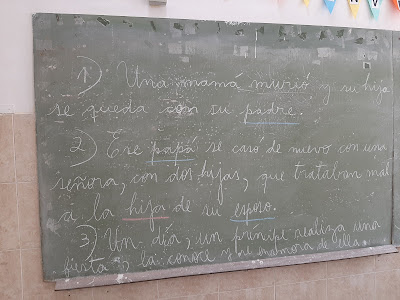 1) Una mamá murió y su hija
se queda con su padre.
2) Ese papá se caso de nuevo con una
señora, con dos hijas, que trataban mal
a la hija de su esposo.
3) Un día, un prínipe realiza una
fiesta y la conoce y se enamora de ella.